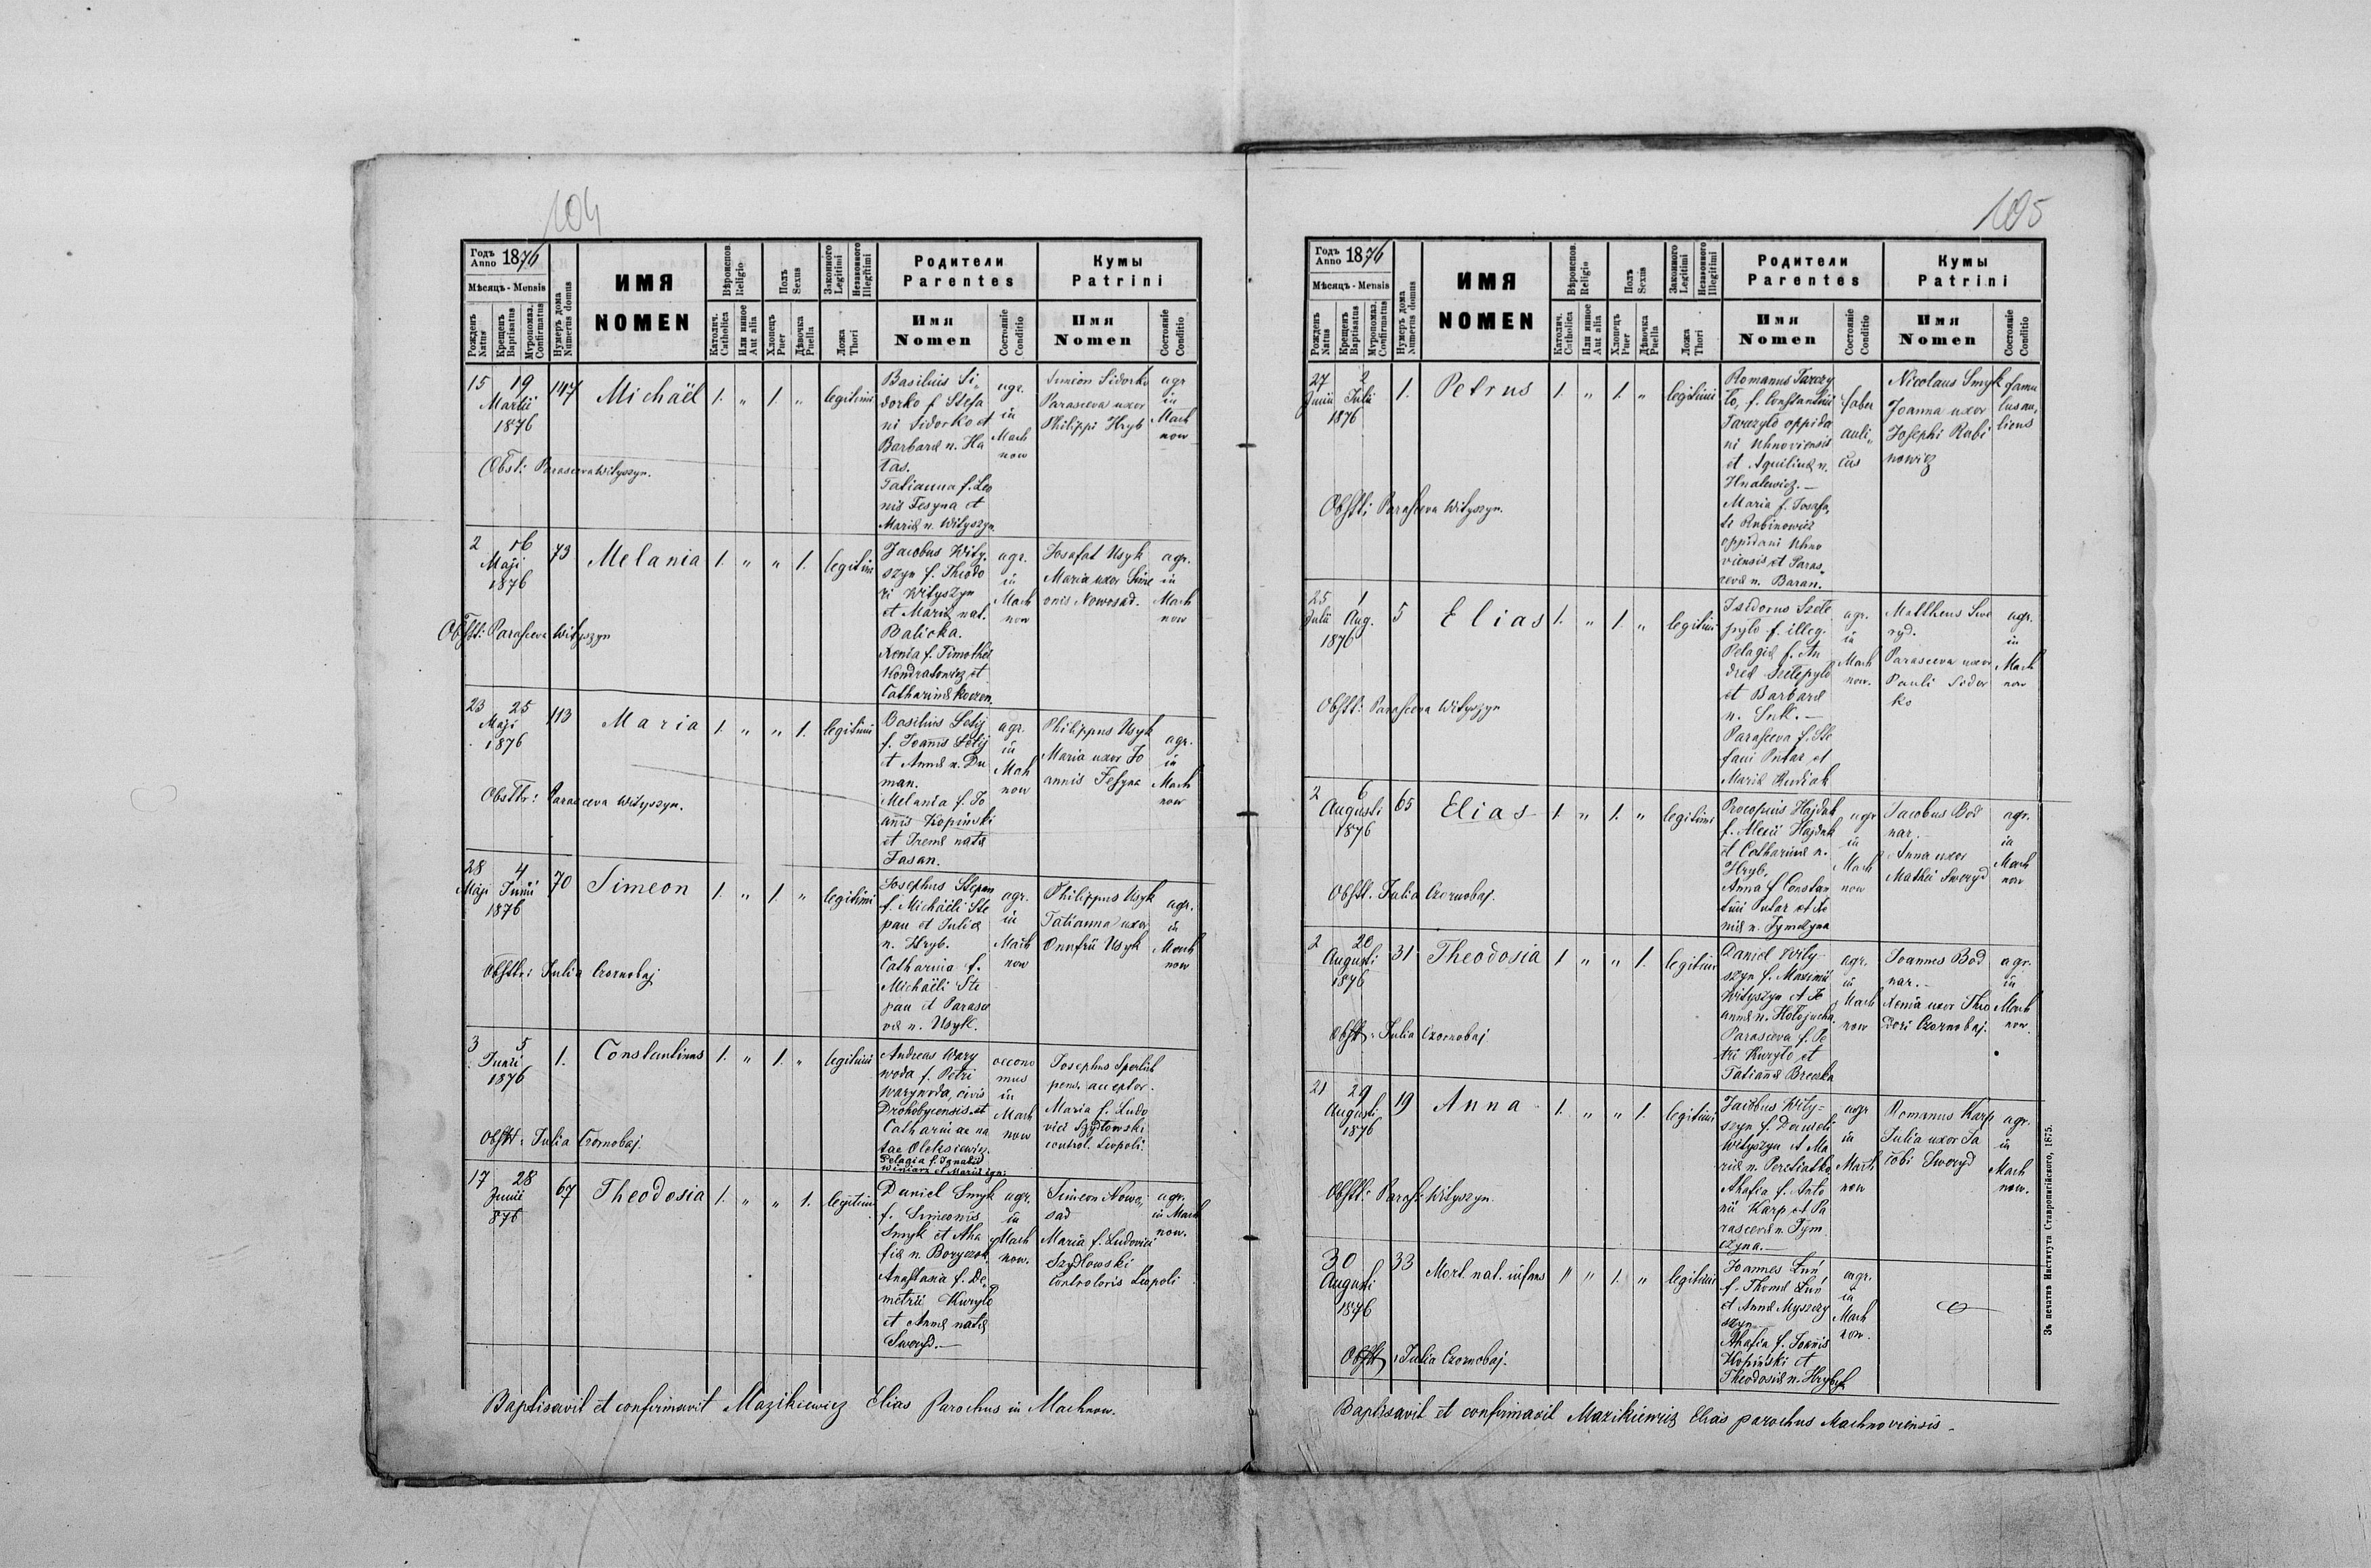 104
Годъ Anno 1876
Мѣсяцъ - Mensis
Рожденъ Natus
Крещенъ Baptisatus
Муропомаз. Confirmatus
Нумеръ дома Numerus domus
ИМЯ
NOMEN
Вѣроиспов. Religio
Католич. Catholica
Или иное Aut alia
Полъ Sexus
Хлопецъ Puer
Дѣвочка Puella
Законного Legitimi
Незаконного Illegitimi
Ложа Thori
Родители
Parentes
Имя
Nomen
Состояніе Conditio
Кумы
Patrini
Имя
Nomen
Состояніе Conditio
15 19
Martii
1876
147
Michaël
1. „ 1. „
legitimi
Basilius Si„
dorko f Stefa
ni Sidorko et
Barbaræ n. Ha
Tatianna f. Leo
nis Fesyna et
Mariæ n. Wityszyn
agr.
in
Mach
now
Simeon Sidorko
Parasceva uxor
Philippi Hryb
agr
in
Mach
now
Obst: Parasceva Wityszyn.
2 16
Maji
1876
73
Melania
1. „ „ 1.
legitimi
Jacobus Wity„
szyn f. Theodo
ri Wityszyn
et Mariæ nat.
Balicka.
Xenia f. Timothei
Kondratowicz et
Catharinæ
agr.
in
Mach
now
Josafat Usyk
Maria uxor Sime
onis Nowosad.
agr.
in
Mach
now
Obstt: Parasceva Wityszyn
23 25
Maji
1876
113
Maria
1. „ „ 1.
legitimi
f. Joannis
et Annæ n. Du
man.
Melania f. Jo
annis Kopinski
et Irenæ natæ
Fasan.
agr.
in
Mach
now
Philippus Usyk
Maria uxor Jo
annis Fesyna
agr.
in
Mach
now
Obsttr: Parasceva Wityszyn.
28 4
Maji Junii
1876
70
Simeon
1. „ 1. „
legitimi
Josephus Stepan
f. Michaëli Ste
pan et Juliæ
n. Hryb.
Catharina f.
Michaëli Ste
pan et Parasce
væ n. Usyk.
agr.
in
Mach
now
Philippus Usyk
Tatianna uxor
Onufrii Usyk
agr.
in
Mach
now
Obsttr: Julia Czornobaj
3 5
Junii
1876
1.
Constantinus
1. „ 1. „
legitimi
Andreas Wary
woda f. Petri
Warywoda, civis
Drohobycensis et
Catharinae na
tae Oleksiewicz.
Pelagia f. Ignatii
Winiarz et Mariæ ign:
oecono
mus
in
Mach
now
Josephus
pens. acceptor.
Maria f. Ludo
vici Szydlowski
control. Leopoli.
Obstt: Julia Czornobaj
17 28
Junii
876
67
Theodosia
1. „ „ 1.
legitimi
Daniel Smyk
f. Simeonis
Smyk et Aha
fiæ n. Boryczok
Anastasia f. De„
metrii Kuryło
et Annæ natæ
Sweryd.—
agr.
in
Mach
now.
Simeon Nowo„
sad
Maria f. Ludovici
Szydlowski
Controloris Leopoli
agr.
in Mach
now.
Baptisavit et confirmavit Mazikiewicz Elias Parochus in Machnow.
105
Годъ Anno 1876
Мѣсяцъ - Mensis
Рожденъ Natus
Крещенъ Baptisatus
Муропомаз. Confirmatus
Нумеръ дома Numerus domus
ИМЯ
NOMEN
Вѣроиспов. Religio
Католич. Catholica
Или иное Aut alia
Полъ Sexus
Хлопецъ Puer
Дѣвочка Puella
Законного Legitimi
Незаконного Illegitimi
Ложа Thori
Родители
Parentes
Имя
Nomen
Состояніе Conditio
Кумы
Patrini
Имя
Nomen
Состояніе Conditio
27 2
Junii Julii
1876
1.
Petrus
1. „ 1. „
legitimi
Romanus Tarczy
ło, f. Constantini
Tarczyło oppida
ni Uhnoviensis
et Aquilinæ n.
Hnalewicz.—
Maria f. Josafa„
ti Rubinowicz
oppidani Uhno
viensis et Paras„
cevæ n. Baran.
faber
auli„
cus
Nicolaus Smyk
Joanna uxor
Josephi Rabi
nowicz
famu
lus au„
licus
Obstt: Parasceva Wityszyn.
25 1
Julii Aug.
1876
5
Elias
1. „ 1. „
legitimi
Isidorus Szcze
pyło f. illeg.
Pelagiæ f. An
dreæ
et Barbaræ
n. Suk.—
Parasceva f. Ste
fani Putar et
Mariæ Kudiak
agr.
in
Mach
now.
Mattheus Swe
ryd.
Parasceva uxor
Pauli Sidor
ko
agr.
in
Mach
now
Obstt: Parasceva Wityszyn
2 6
Augusti
1876
65
Elias
1 „ 1. „
legitimi
Procopius Hajduk
f. Alexii Hajduk
et Catharinæ n.
Hryb,
Anna f Constan
tini Putar et Xe
niæ n. Tymczyna
agr
in
Mach
now
Jacobus Bod
nar.—
Anna uxor
Mathei Sweryd
agr.
in
Mach
now
Obstt. Julia Czornobaj.
2 20
Augusti
1876
31
Theodosia
1 „ „ 1.
legitimi
Daniel Wity-
szyn f. Maximi
Wityszyn et Jo
annæ n. Hołojucha
Parasceva f. Pe
tri Kuryło et
Tatiannæ Breczka
agr.
in
Mach
now
Joannes Bod
nar.—
Xenia uxor Theo
dori Czornobaj.
agr.
in
Mach
now.
Obstt: Julia Czornobaj
21 29
Augusti
1876
19
Anna
1. „ „ 1.
legitimi
Jacobus Wity-
szyn f. Danieli
Wityszyn et Ma
riæ n. Peretiatko
Ahafia f. Anto
nii Karp et Pa
rascevæ n. Tym
czyna.—
agr
in
Mach
now
Romanus Karp
Julia uxor Ja
cobi Sweryd
agr.
in
Mach
now.
Obstt: Parasc: Wityszyn.
30
Augusti
1876
33
Mort. nat. infans
„ „ 1. „
legitimi
Joannes
f. Thomæ
et Annæ Myszczy
szyn
Ahafia f. Joannis
Kopiński et
Theodosiæ n.
agr.
in
Mach
now.
Obstt: Julia Czornobaj.
Baptisavit et confirmavit Mazikiewicz Elias parochus Machnoviensis.
Зъ печатнѣ Института Ставропигійского, 1875.